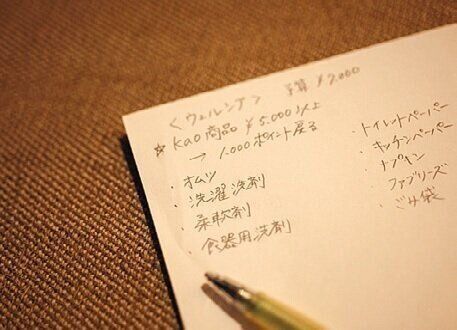 <ウェルシア> 予算 ¥7,000
☆ kao商品 ¥5,000以上
→ 1,000ポイント戻る
・オムツ
・洗濯洗剤
・柔軟剤
・食器用洗剤
・トイレットペーパー
・キッチンペーパー
・ナプキン
・ファブリーズ
・ごみ袋